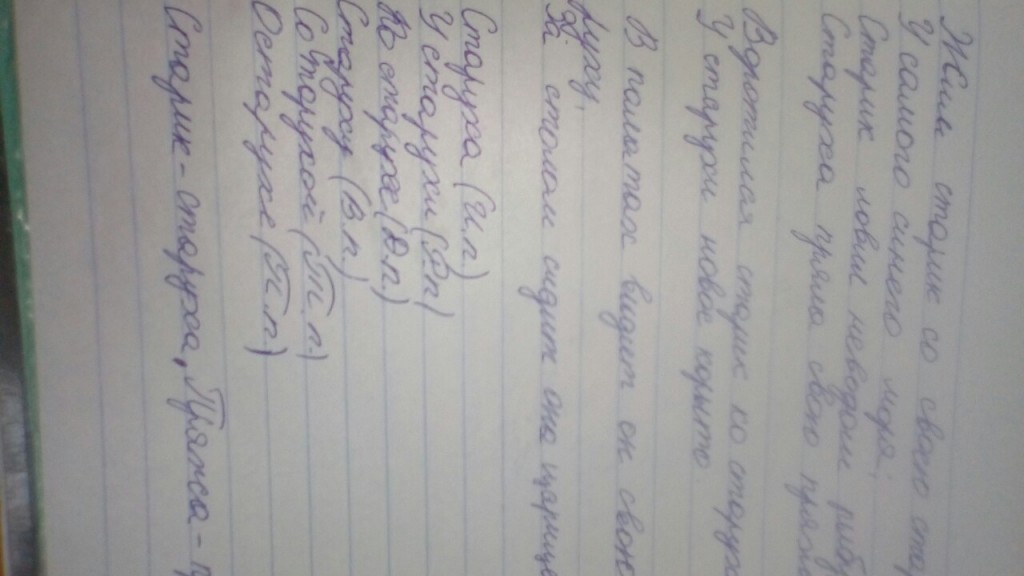 Жил старик со своею стар
У самого синего моря;
Старик ловил неводом рыбу
Старуха пряла свою пряж
Воротился старик ко старухе
У старухи новое корыто
В палатах видит он свою
руху,
За столом сидит она царице
Старуха (И.п)
У старухи (Рп)
Ко старухе (Д.п.)
Старуху (В.п.)
Со старухой (Т.п.)
О старухе (П.п.)
Старик - старуха, Пряжа - п